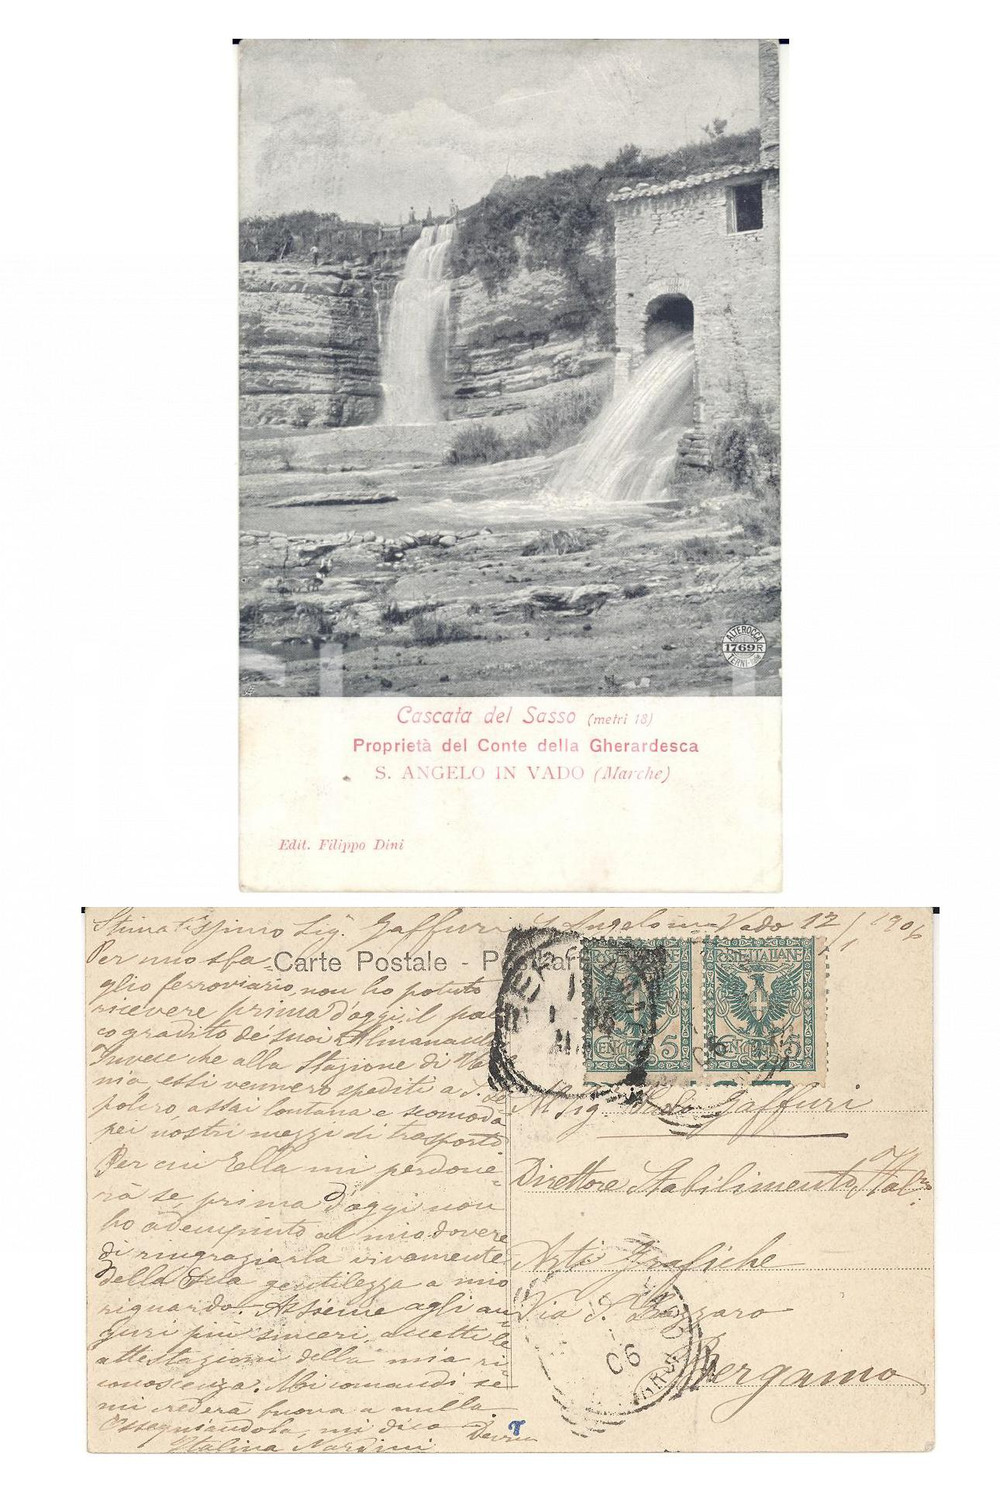 ALTEROCCA
1769R
TERNI
Cascata del Sasso (metri 18)
Proprietà del Conte della Gherardesca
S. ANGELO IN VADO (Marche)
Edit. Filippo Dini
Sig. Gaffuri S. Angelo in Vado 12/1 1906
Carte Postale -
POSTE ITALIANE POSTE ITALIANE
CEN. 5 CEN. 5
Per uno sba
glio ferroviario, non ho potuto
ricevere prima d'oggi il pac
co gradito de' suoi Almanacchi
Invece che alla Stazione di
nia, essi vennero spediti a S. Se
polcro assai lontana e scomoda
pei nostri mezzi di trasporto
Per cui Ella mi perdone
rà se, prima d'oggi non
ho adempiuto al mio dovere
di ringraziarla vivamente
della Sua gentilezza a mio
riguardo. Assieme agli au
guri più sinceri, accetti le
attestazioni della mia ri
conoscenza. Mi comandi se
mi crederà buona a nulla
Ossequiandola, mi dico Dev.ma
Italina Nardini
Al Sig. Gaffuri
Direttore Stabilimento Ital.no
Arti Grafiche
Via S. Lazzaro
Bergamo
06